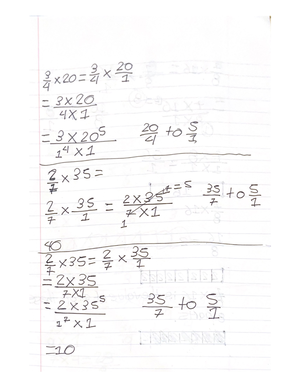 3/4 × 20 = 3/4 × 20/1
= 3 × 20 / 4 × 1
= 3 × 20⁵ / 1⁴ × 1    20/4 to 5/1
2/7 × 35 =
2/7 × 35/1 = 2 × 35 / 7 × 1    = 5    35/7 to 5/1
1
40
2/7 × 35 = 2/7 × 35/1
= 2 × 35 / 7 × 1
= 2 × 35⁵ / 1² × 1    35/7 to 5/1
= 10